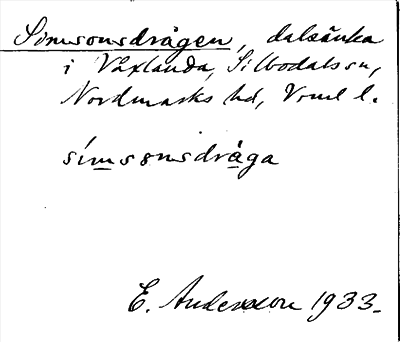 Simsonsdrågen, dalsänka
i Våxlanda, Silbodals sn,
Nordmarks hd, Vrml l.
simsonsdråga
E. Andersson 1933.